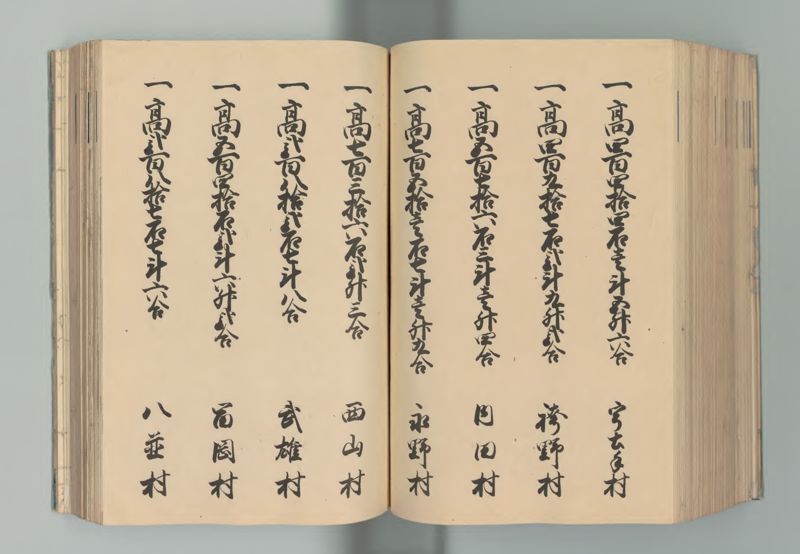 一高四百四拾四石壱斗五升六合
村
一高四百九拾七石弐斗九升弐合
袴野村
一高五百七拾六石三斗壱升四合
内田村
一高七百五拾壱石七斗壱升九合
永野村
一高七百三拾六石弐升三合
西山村
一高弐百八拾弐石七斗八合
武雄村
一高五百四拾石弐斗六升弐合
富岡村
一高弐百八拾七石七斗六合
八並村